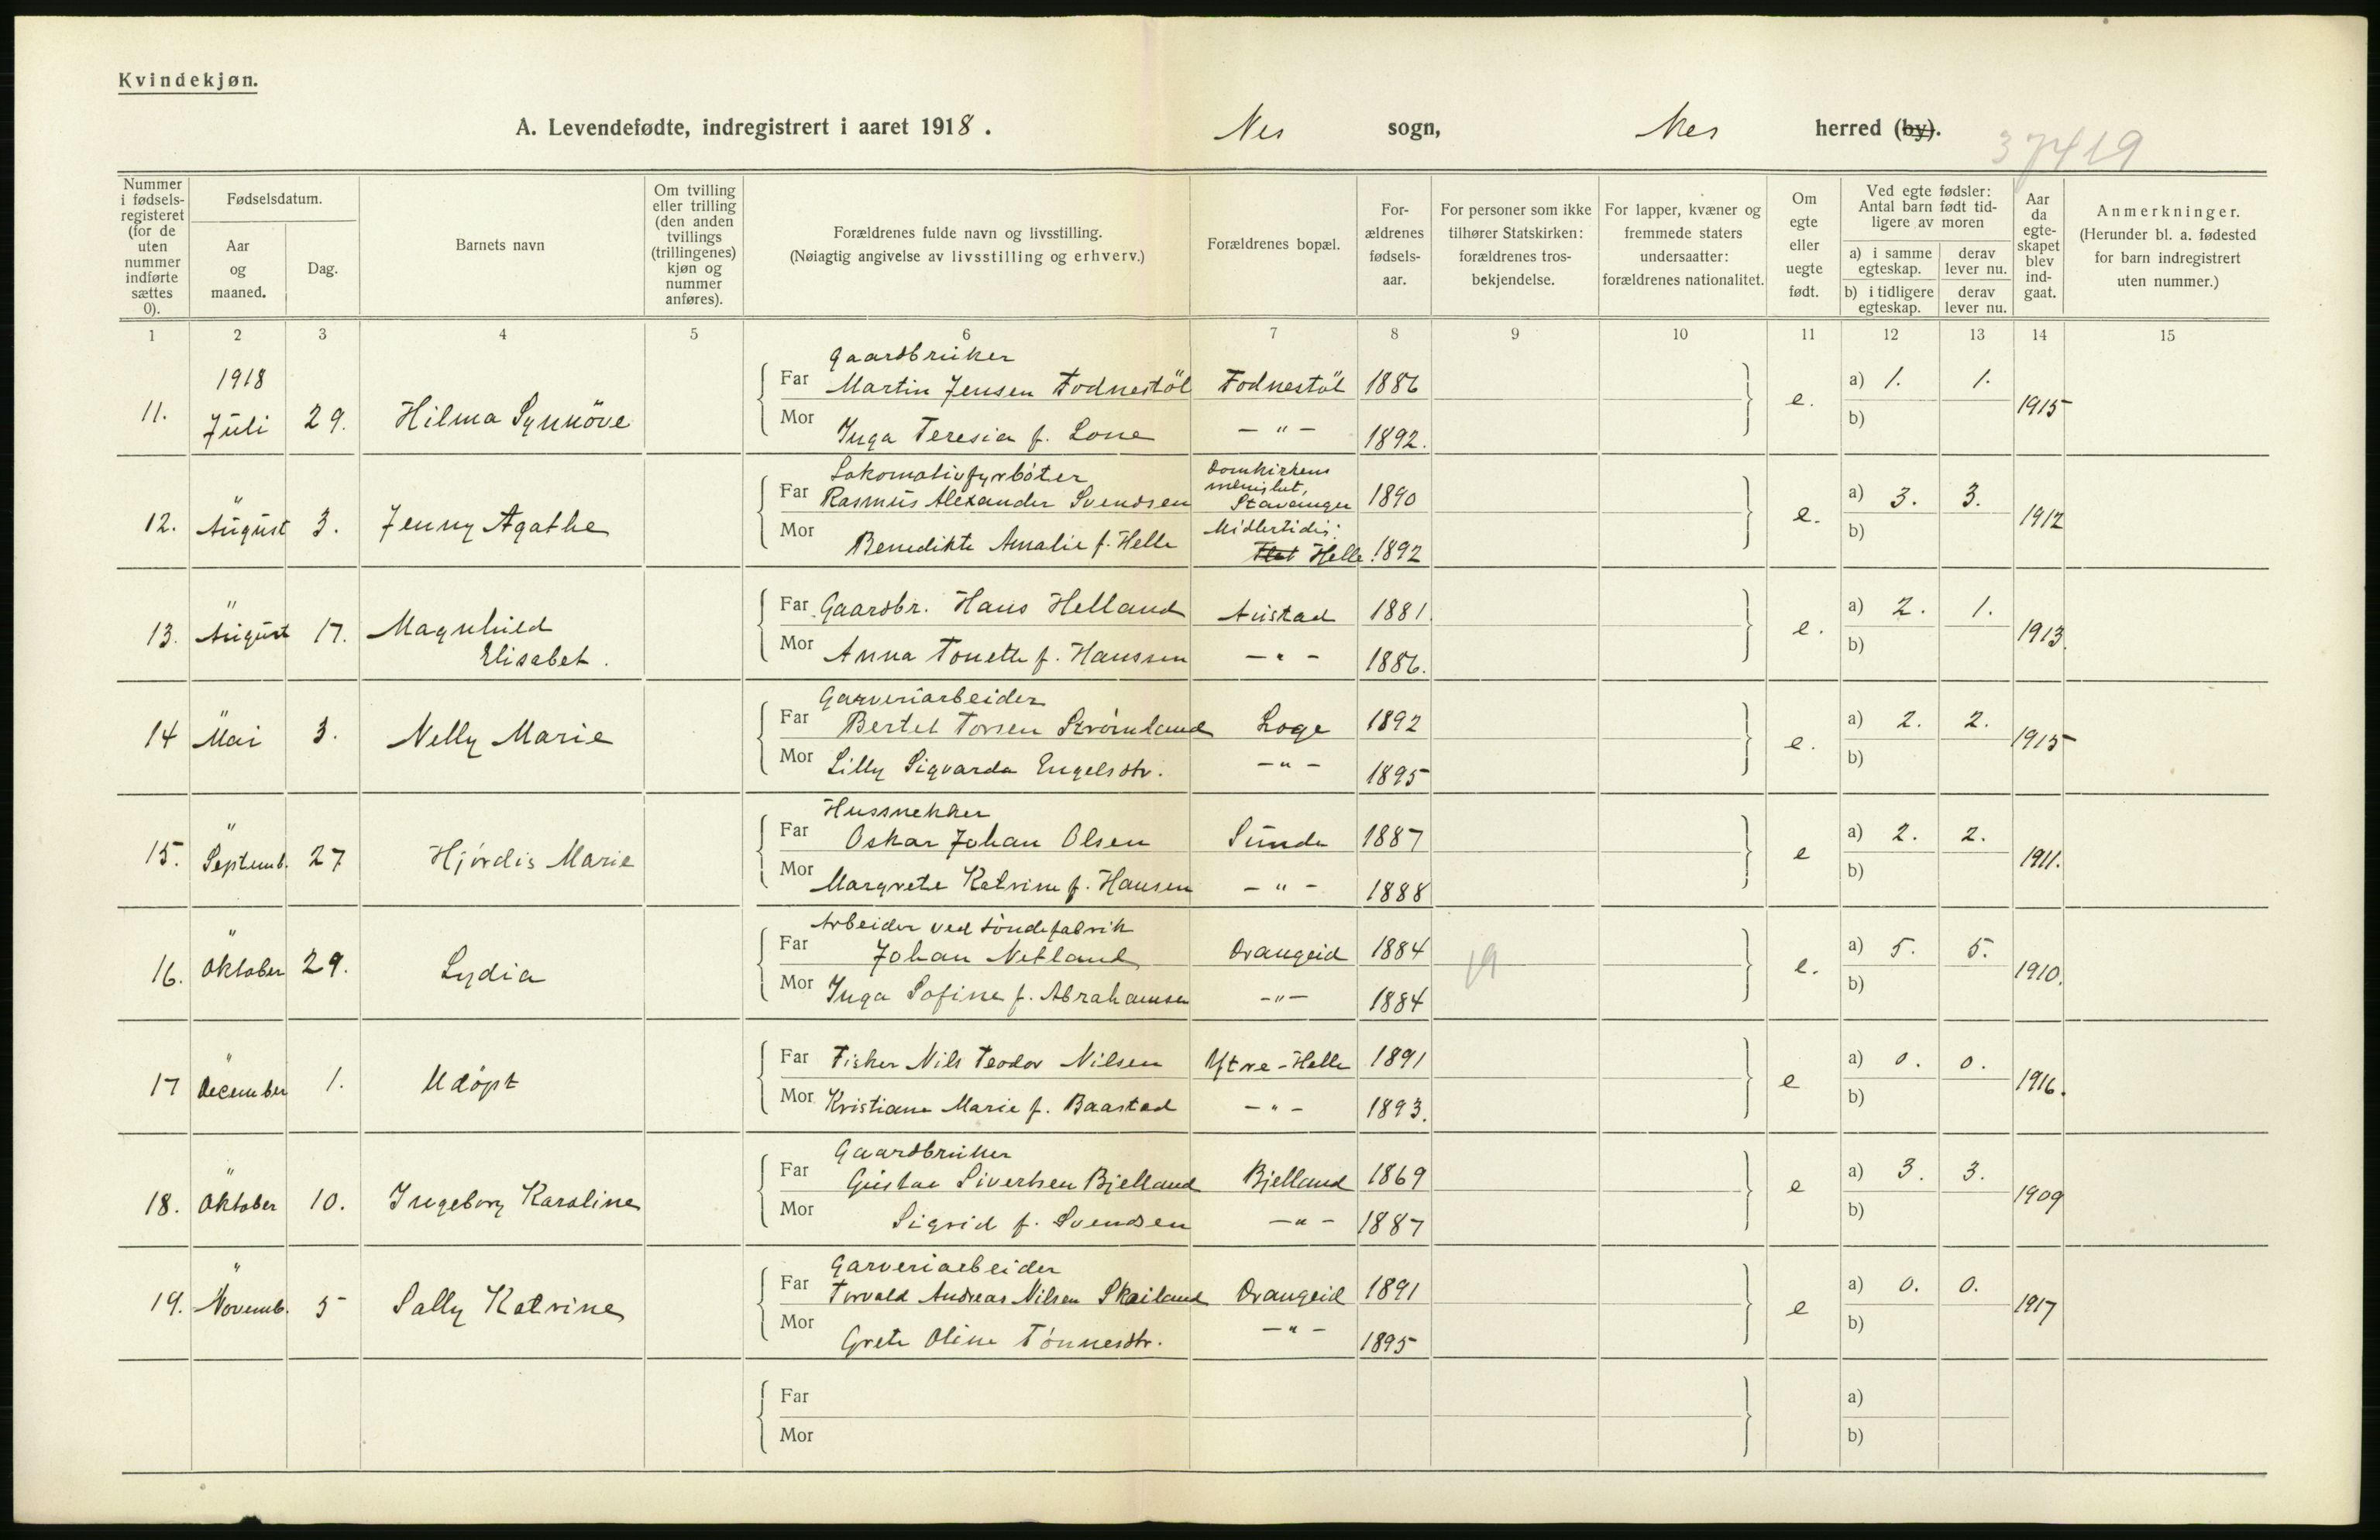 Kvindekjøn.
A. Levendefødte, indregistrert i aaret 1918. Nes sogn, Nes herred (by).
37419
Nummer i fødselsregisteret (for de uten nummer indførte sættes 0).
Fødselsdatum.
Aar og maaned.
Dag.
Barnets navn
Om tvilling eller trilling (den anden tvillings (trillingenes) kjøn og nummer anføres).
Forældrenes fulde navn og livsstilling.
(Nøiagtig angivelse av livsstilling og erhverv.)
Forældrenes bopæl.
Forældrenes fødselsaar.
For personer som ikke tilhører Statskirken: forældrenes trosbekjendelse.
For lapper, kvæner og fremmede staters undersaatter: forældrenes nationalitet.
Om egte eller uegte født.
Ved egte fødsler: Antal barn født tidligere av moren
a) i samme egteskap. derav lever nu.
b) i tidligere egteskap. derav lever nu.
Aar da egteskapet blev indgaat.
Anmerkninger.
(Herunder bl. a. fødested for barn indregistrert uten nummer.)
1 2 3 4 5 6 7 8 9 10 11 12 13 14 15
Gaardbruker
1918
11. Juli 29. Hilma Synnöve Far Martin Jensen Fodnestöl Fodnestöl 1886 e. a) 1. 1. 1915
Mor Inga Teresia f. Lone — " — 1892. b)
Lokomotivfyrböter Domkirkens menighet,
12. " August 3. Jenny Agathe Far Rasmus Alexander Svendsen Stavanger 1890 e. a) 3. 3. 1912
Midlertidig:
Mor Benedikte Amalie f. Helle Helle 1892 b)
13. " August 17. Magnhild Elisabet. Far Gaardbr. Hans Helland Austad 1881. e. a) 2. 1. 1913.
Mor Anna Tonette f. Hanssen — " — 1886. b)
Garveriarbeider
14 " Mai 3. Nelly Marie Far Bertel Torsen Strömland Loge 1892 e. a) 2. 2. 1915
Mor Lilly Sigvarda Engelsdtr. — " — 1895 b)
Hussnekker
15. " Septemb. 27 Hjördis Marie Far Oskar Johan Olsen Sunde 1887 e a) 2. 2. 1911.
Mor Margrete Katrine f. Hansen — " — 1888 b)
Arbeider ved töndefabrik
16. " Oktober 29. Lydia Far Johan Netland Drangeid 1884 19 e. a) 5. 5. 1910.
Mor Inga Sofine f. Abrahamsen — " — 1884 b)
17 " December 1. Udöpt Far Fisker Nils Teodor Nilsen Ytre-Helle 1891 e a) 0. 0. 1916.
Mor Kristiane Marie f. Baastad — " — 1893. b)
Gaardbruker
18. " Oktober 10. Ingeborg Karoline Far Gustav Sivertsen Bjelland Bjelland 1869 e a) 3. 3. 1909
Mor Sigrid f. Svendsen — " — 1887 b)
Garveriarbeider
19. " Novemb. 5 Sally Katrine Far Torvald Andreas Nilsen Skailand Drangeid 1891 e a) 0. 0. 1917
Mor Grete Oline Tönnesdtr. — " — 1895 b)
Far a)
Mor b)